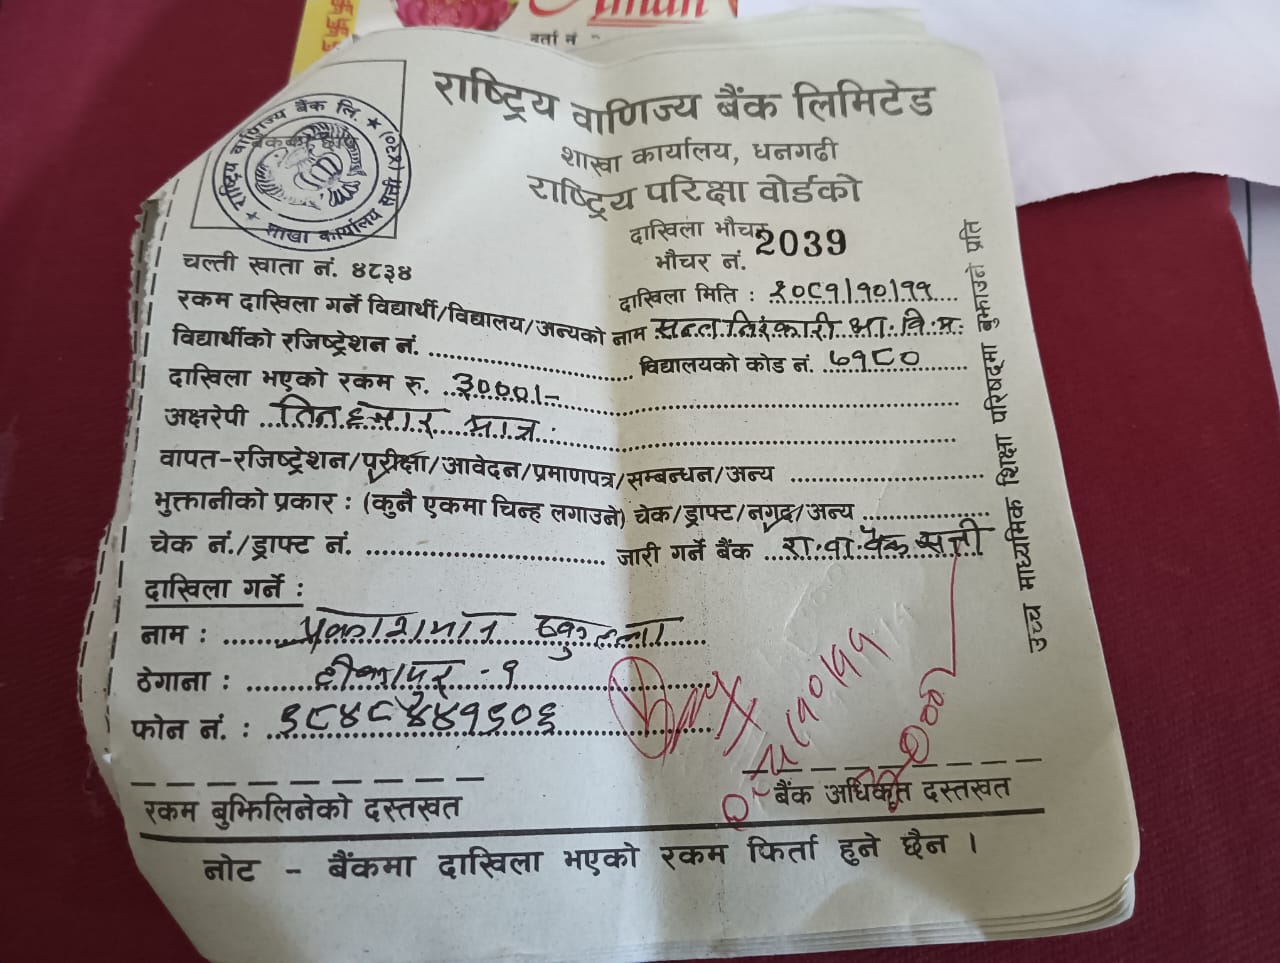 Aman
दर्ता नं
राष्ट्रिय वाणिज्य बैंक लिमिटेड
शाखा कार्यालय, धनगढी
राष्ट्रिय परिक्षा वोर्डको
दाखिला भौचर
भौचर नं. 2039
राष्ट्रिय वाणिज्य बैंक लि.
शाखा कार्यालय सत्ती (४३०)
चल्ती खाता नं. ४८३४
दाखिला मिति : २०८१/१०/११
रकम दाखिला गर्ने विद्यार्थी/विद्यालय/अन्यको नाम सन्त निरंकारी आ. वि. म.
विद्यार्थीको रजिष्ट्रेशन नं. .......... विद्यालयको कोड नं. ७१८०
दाखिला भएको रकम रु. ३०००।-
अक्षरेपी तिन हजार मात्र
वापत-रजिष्ट्रेशन/परीक्षा/आवेदन/प्रमाणपत्र/सम्बन्धन/अन्य ..........
भुक्तानीको प्रकार : (कुनै एकमा चिन्ह लगाउने) चेक/ड्राफ्ट/नगद/अन्य ..........
चेक नं./ड्राफ्ट नं. .......... जारी गर्ने बैंक रा. वा. बैंक सत्ती
दाखिला गर्ने :
नाम : प्रकाशमान
ठेगाना : टीकापुर - १
फोन नं. : ९८४८४४१९०६
रकम बुझिलिनेको दस्तखत
बैंक अधिकृत दस्तखत
नोट - बैंकमा दाखिला भएको रकम फिर्ता हुने छैन ।
उच्च माध्यमिक शिक्षा परिषद्मा बुझाउने प्रति